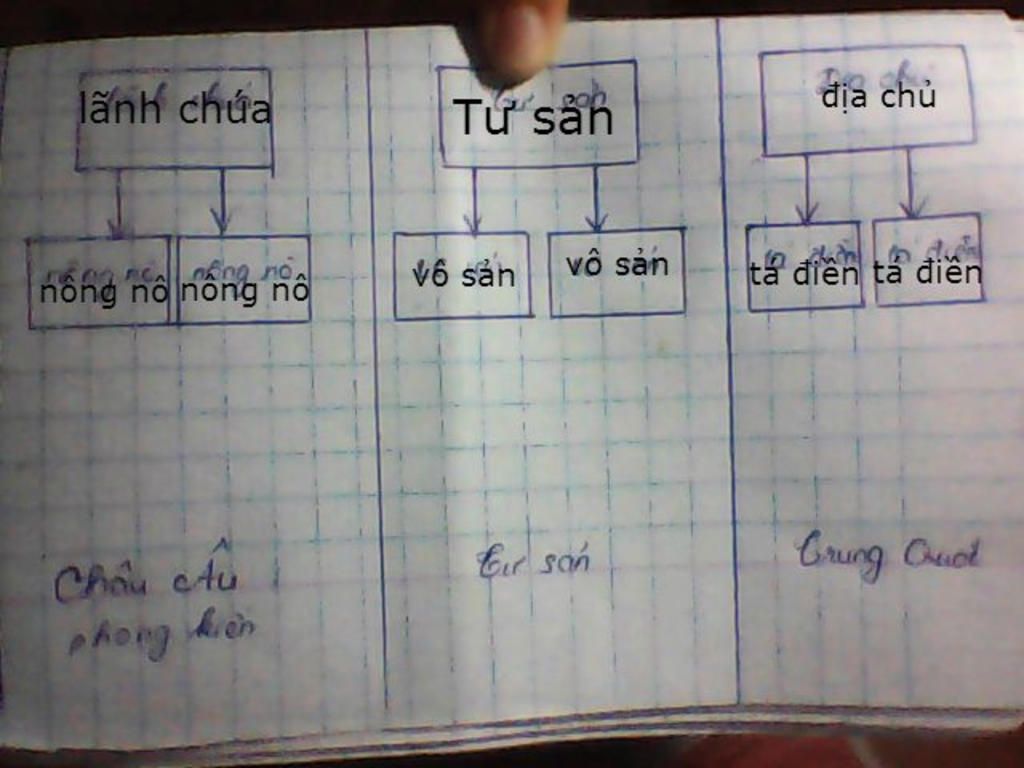 lãnh chứa
nông nô
nông nô
Châu Âu
phong kiến
Tư sản
vô sản
vô sản
Tư sản
địa chủ
tá điền
tá điền
Trung Quốc